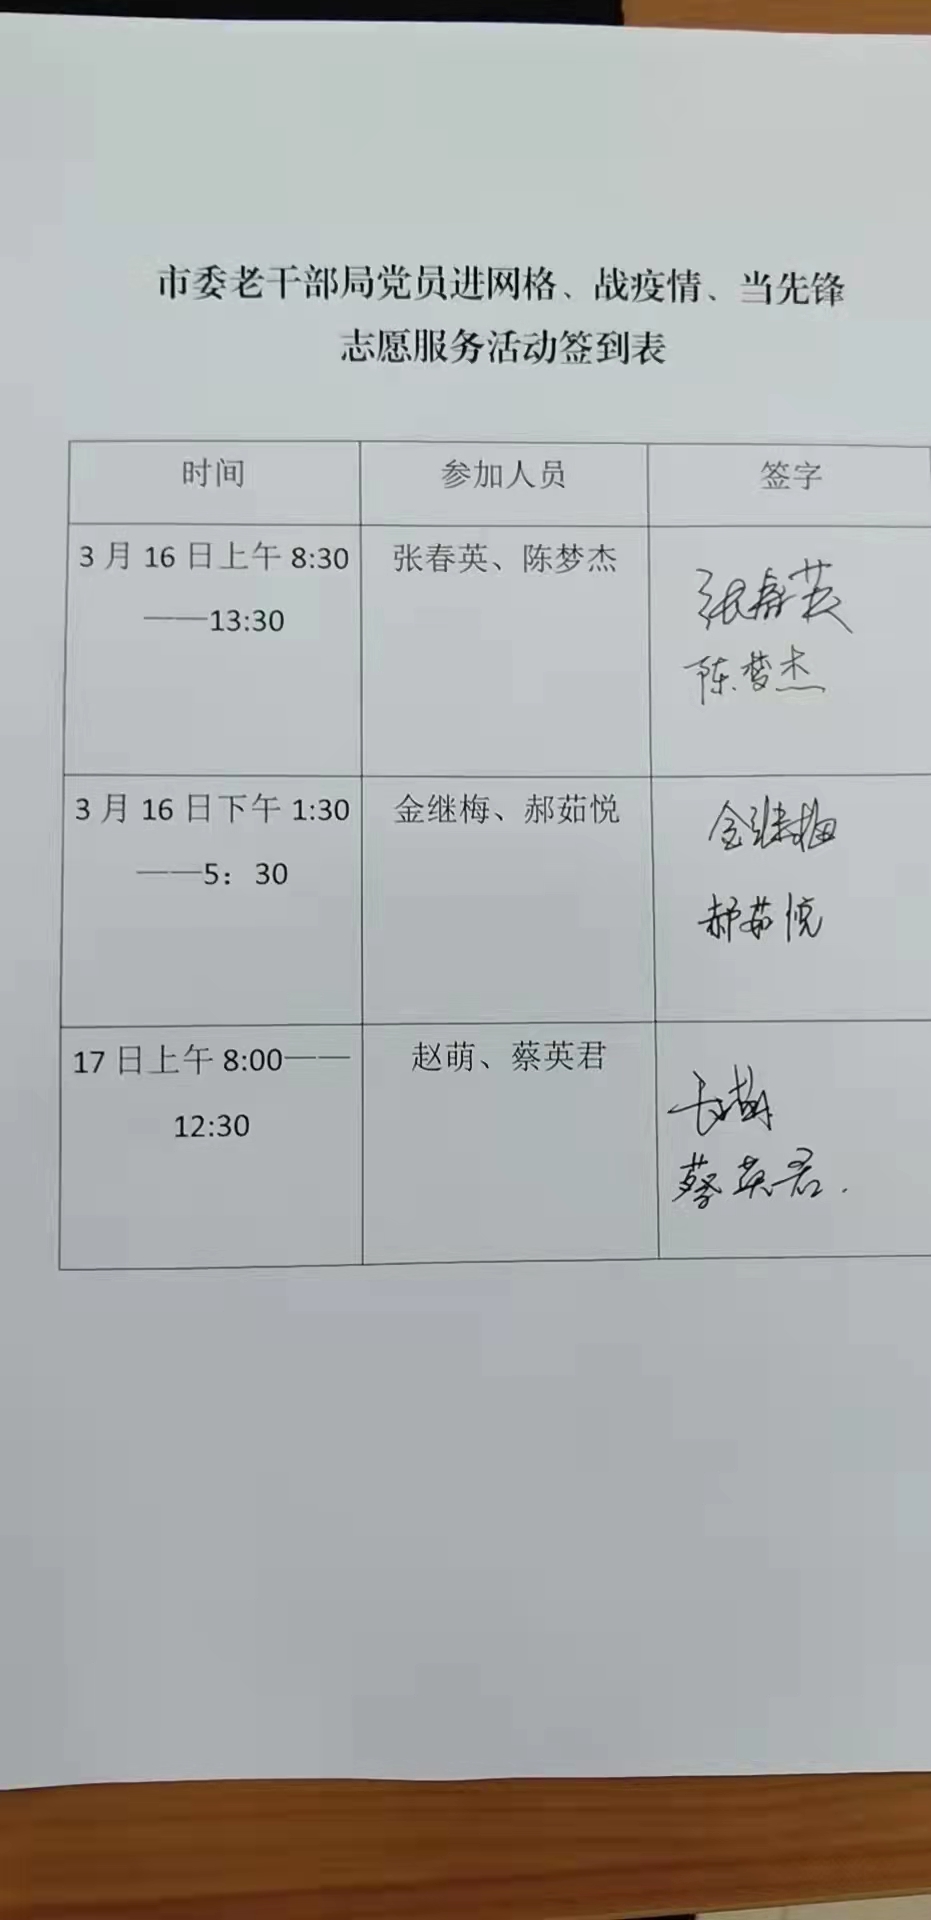 市委老干部局党员进网格、战疫情、当先锋
志愿服务活动签到表
时间 参加人员 签字
3月16日上午8:30 张春英、陈梦杰 张春英
——13:30 陈梦杰
3月16日下午1:30 金继梅、郝茹悦 金继梅
——5：30 郝茹悦
17日上午8:00—— 赵萌、蔡英君
12:30 蔡英君.